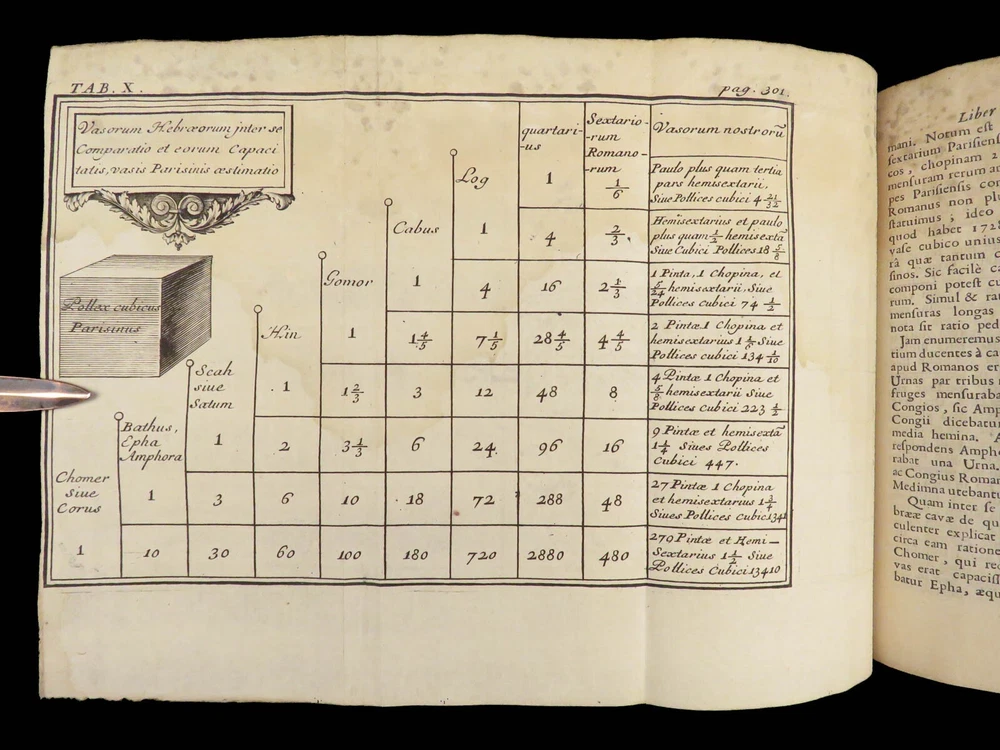 TAB. X.
pag. 301.
Vasorum Hebræorum jnter se
Comparatio et eorum Capaci
tatis, vasis Parisinis æstimatio
Pollex cubicus
Parisinus
quartari-
-us
Sextario-
-rum
Romano-
-rum
Vasorum nostrorũ
Log
1
1/6
Paulo plus quam tertia
pars hemisextarii,
Siue Pollices cubici 4 21/32
Cabus
1
4
2/3.
Hemisextarius et paulo
plus quam 1/2 hemisextã
Siue Cubici Pollices 18 5/8
Gomor
1
4
16
2 1/3
1 Pinta, 1 Chopina, et
5/24 hemisextarii, Siue
Pollices Cubici 74 1/2
Hin
1
1 4/5
7 1/5
28 4/5
4 4/5
2 Pintæ 1 Chopina et
hemisextarius
Siue
Pollices cubici 134 1/10
Scah
siue
Satum
1
1 2/3
3
12
48
8
4 Pintæ 1 Chopina et
5/8 hemisextarii Siue
Pollices Cubici 223 1/2
Bathus,
Epha
Amphora
1
2
3 1/3
6
24
96
16
9 Pintæ et hemisextã
1 1/4 Siues Pollices
Cubici 447.
Chomer
Siue
Corus
1
3
6
10
18
72
288
48
27 Pintæ 1 Chopina
et hemisextarius 1 3/4
Siues Pollices Cubic 1341
1
10
30
60
100
180
720
2880
480
270 Pintæ et Hemi-
Sextarius 1 1/2 Siue
Pollices Cubici 13410
Liber
mani. Notum est
sextarium Parisiens
cos, chopinam 2
mensuram rerum ar
pes Parisiensis con
Romanus non plu
statuimus; ideo
quod habet 1728
vase cubico unius
râ quæ tantum c
sinos. Sic facilè ca
componi potest cu
rum. Simul & ra
mensuras longas
nota sit ratio ped
Jam enumeremus
tium ducentes à ca
apud Romanos er
Urnas par tribus
fruges mensuraba
Congios, sic Amp
Congii dicebatur
media hemina. A
respondens Ampho
rabat una Urna.
ac Congius Roman
Medimna utebantu
Quam inter se
bræe cavæ de qu
culenter explicat
circa eam ratione
Chomer, qui rec
vas erat capacissi
batur Epha, æqu